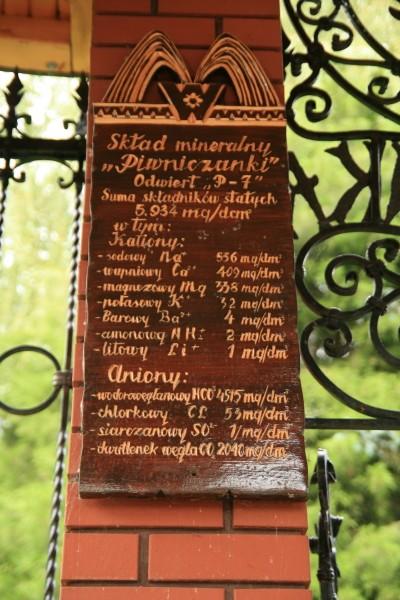 Skład mineralny
„Piwniczanki"
Odwiert „P-7"
Suma składników stałych
5.934 mg/dcm³
w tym:
Kationy:
-sodowy Na⁺ 556 mg/dm³
-wapniowy Ca⁺ 409 mg/dm³
-magnezowy Mg 338 mg/dm³
-potasowy K⁺ 32 mg/dm³
-Barowy Ba²⁺ 4 mg/dm³
-amonowy NH⁺ 2 mg/dm³
-litowy Li⁺ 1 mg/dm³
Aniony:
-wodorowęglanowy HCO³ 4515 mg/dm³
-chlorkowy CL 53 mg/dm³
-siarczanowy SO² 1 mg/dm³
-dwutlenek węgla CO₂ 2040 mg/dm³